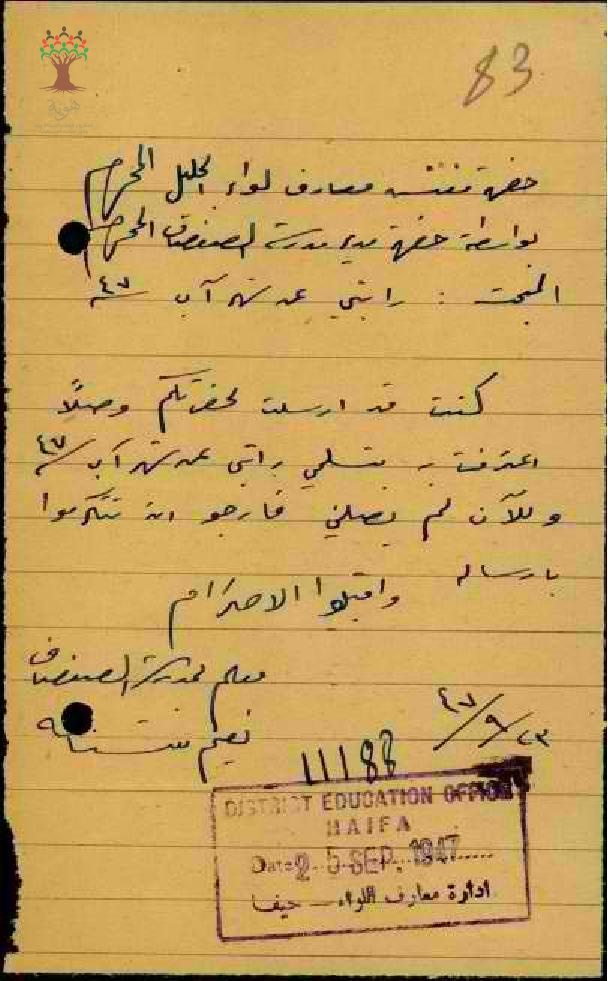 83
هوية
حضرة مفتش معارف لواء الجليل المحترم
بواسطة حضرة مدير مدرسة الصفصاف المحترم
المبحث : راتبي عن شهر آب سنة ٤٧
كنت قد ارسلت لحضرتكم وصلاً
اعترفت به بتسلمي راتبي عن شهر آب سنة ٤٧
وللآن لم يصلني فارجو ان تتكرموا
بارساله واقبلوا الاحترام
معلم مدرسة الصفصاف
نعيم
٢٣/٩/٤٧
11188
DISTRICT EDUCATION OFFICE
HAIFA
Date 25 SEP. 1947
ادارة معارف اللواء – حيفا